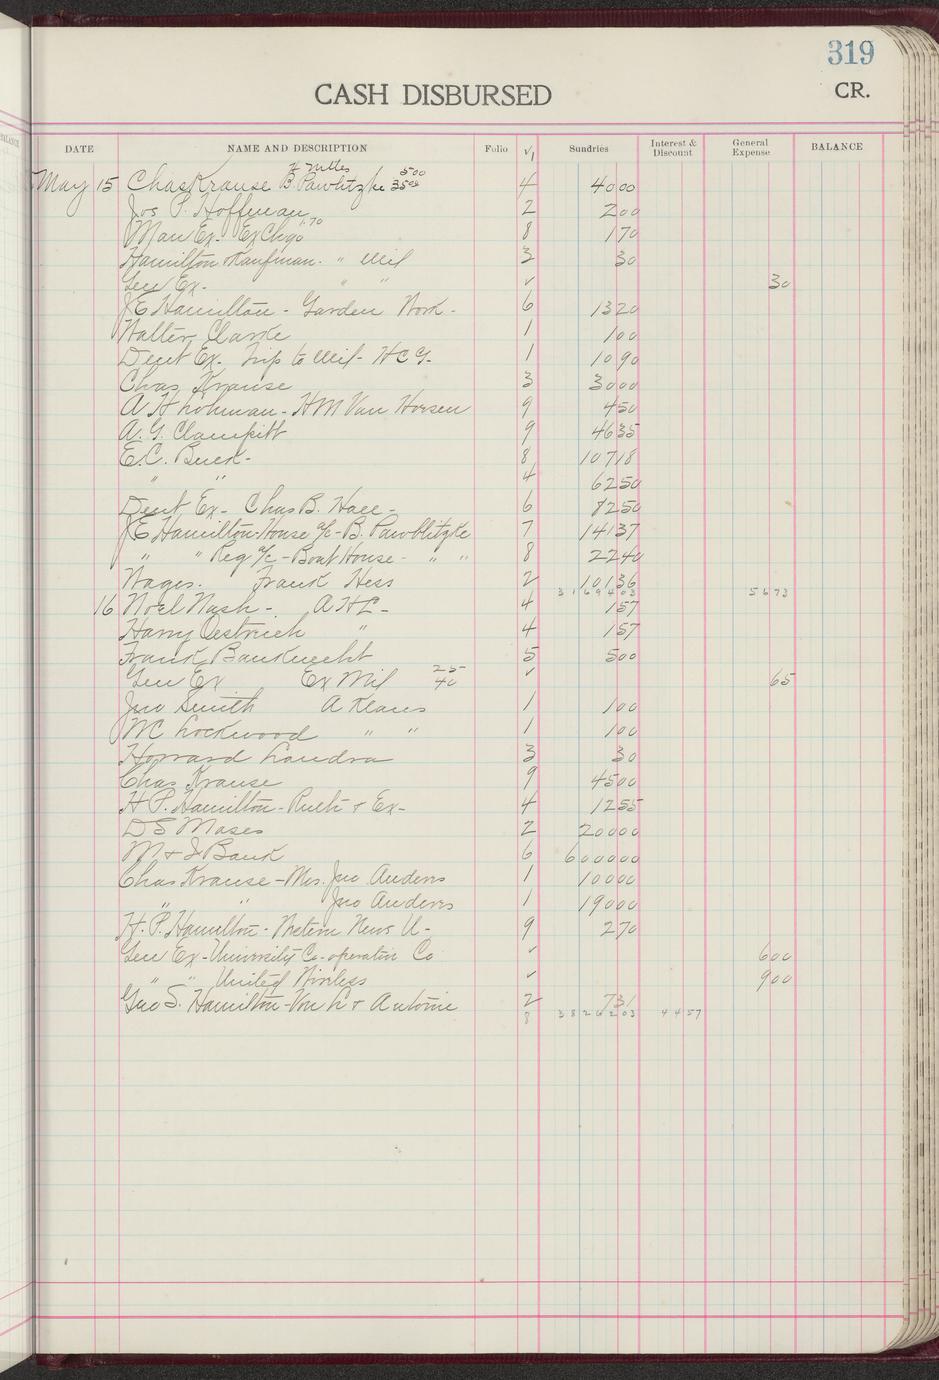 319
CASH DISBURSED
CR.
DATE NAME AND DESCRIPTION Folio √ Sundries Interest & Discount General Expense BALANCE
500
May 15 Chas Krause B. Pawblitzke 3500 4 4000
Jos P. Hoffman 2 200
Man Ex- Ex Chgo 1.70 8 170
Hamilton Kaufman - " Mil 3 30
Gen Ex- " " ✓ 30
JE Hamilton - Garden Work - 6 1320
Walter Clarke 1 100
Dent Ex- Trip to Mil- HCG- 1 1090
Chas Krause 3 3000
A H Lohman - HM Van Horsen 9 450
A. G. Clampitt 9 4635
E.C. Buck - 8 10718
" " 4 6250
Dent Ex- Chas B. Hall - 6 8250
JE Hamilton-House a/c - B. Pawblitzke 7 14137
" " Reg a/c - Boat House - " " 8 2240
Wages. Frank Hess 2 10136
3169403 5673
16 Noel Nash - A H L - 4 157
Harry Oestreich " 4 157
Frank Bauknecht 5 500
Gen Ex Ex Mil 25 40 ✓ 65
Jno Smith A Klaus 1 100
MC Lockwood " " 1 100
Howard Londra 3 30
Chas Krause 9 4500
H P. Hamilton - Ruth & Ex - 4 1255
D S Moses 2 20000
M & I Bank 6 600000
Chas Krause - Mrs. Jno Anders 1 10000
" " Jno Anders 1 19000
H. P. Hamilton - News U - 9 270
Gen Ex - University Co-operative Co ✓ 600
" " United Wireless ✓ 900
Geo S. Hamilton - Von L & Antoine 2 731
8 3826203 4457